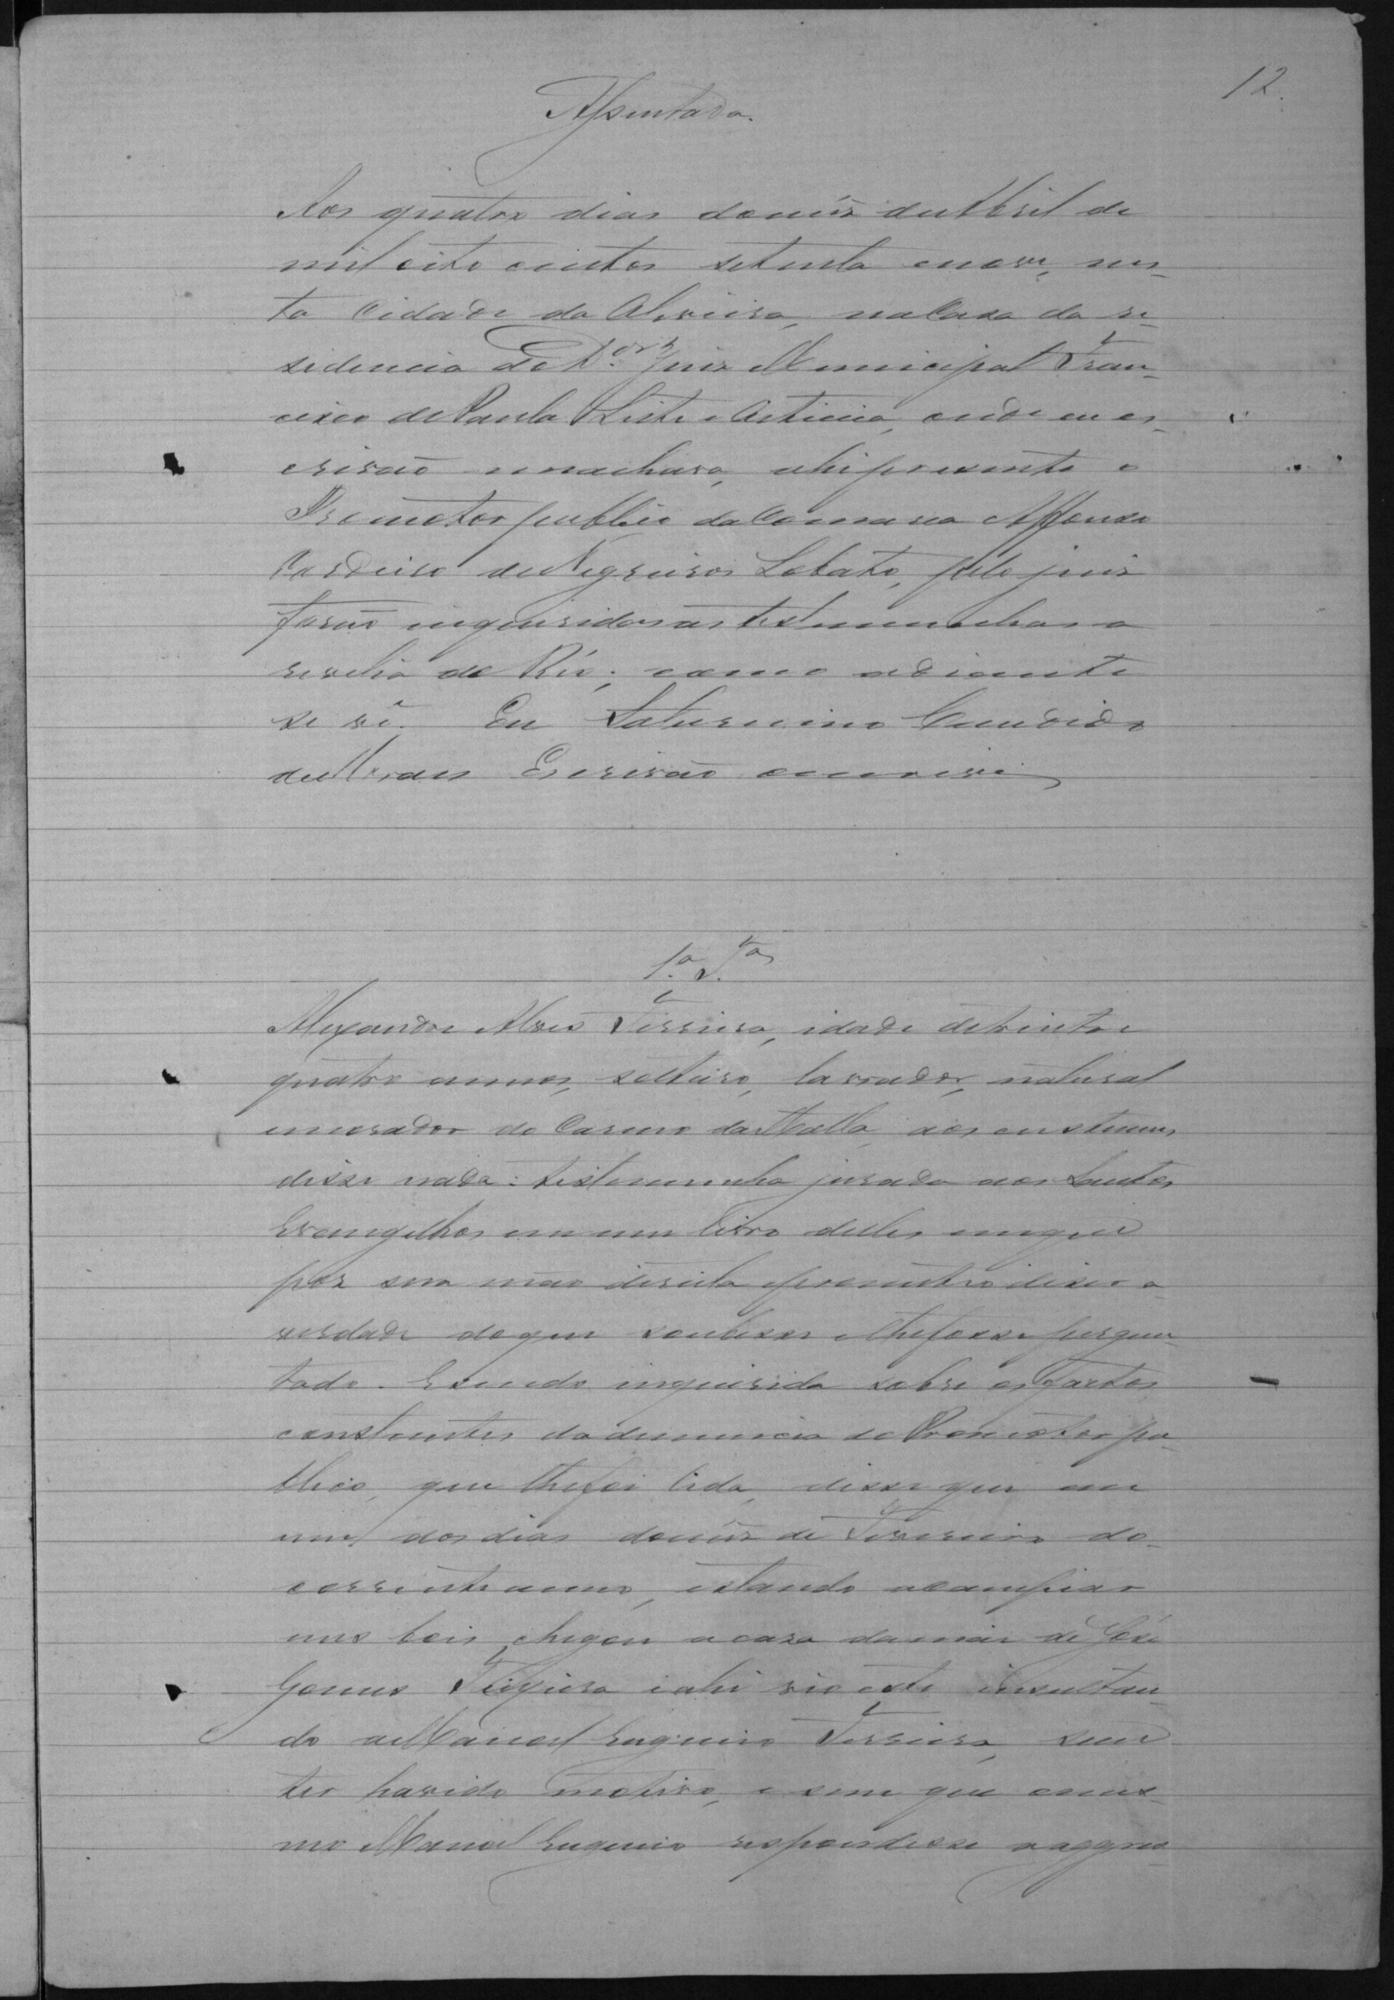 12.
Assentada.
Aos quatro dias do mês de Abril de
mil oito centos setenta e nove, nes-
ta Cidade da Oliveira, na Casa da re-
sidencia do Dor Juiz Municipal Fran-
cisco de Paula Leite e Oiticica, onde eu es-
crivão me achava, ahi presente o
Promotor publico da Comarca Affonso
Cardoso de Negreiros Lobato, pelo juiz
forão inqueridas as testemunhas a
revelia do Réo; como adiante
se vê. Eu Saturnino Candido
de Moraes Escrivão o escrevi
1.a T.a
Alexandre Alves Ferreira, idade de trinta e
quatro annos, solteiro, lavrador, natural
e morador do Carmo da Matta, aos costumes
disse nada: testemunha jurada aos Santos
Evangelhos em um livro delles em que
poz sua mão direita e prometteo dizer a
verdade do que soubesse e lhe fosse pergun-
tado. E sendo inquirida sobre os factos
constantes da denuncia do Promotor pu-
blico, que lhe foi lida, disse que em
um dos dias do mês de Fevereiro do
corrente anno, estando a campiar
uns bois chegou a casa da mãi de José
Gomes Teixeira e ahi vio este insultan-
do a Manoel Eugenio Ferreira, sem
ter havido motivo, e sem que o mes-
mo Manoel Eugenio respondesse a aggres-